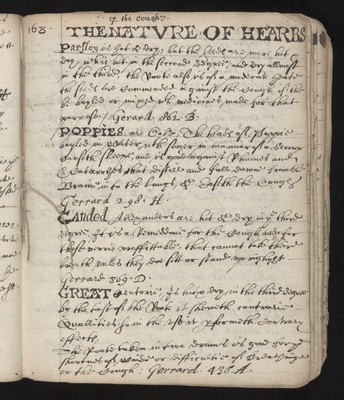 of the cough
168
THE NATVRE OF HEARBS
Parsley is hot & dry; but the seed are more hot &
dry which is hot in the second degree, and dry almost
in the third the Roote also is of a moderate heate
the seeds are Commended against the Cough if the
be boyled or mixed wth medicines made for that
purpose / Gerard. 862. B.
POPPIES are Cold. The heads of Poppie
boyled in Water, wth suger in manner of a Sirrop
Causeth sleepe, and is good against Rheumes and
Catarrhes that distill and fall downe from the
Braine in to the lungs, & Easeth the Cough
Gerrard 298. H.
Candied, Allexanders are hot & dry in ye third
degree It is a for the Cough and for
those verrie proffittable, that cannot take there
breath vnles they doe sitt or stand vpright
Gerrard 309. D.
GREAT is hot & dry in the third degree
by the tast of the Roote it sheweth contrarie
Quallities, & in the vse it performeth Contrary
effects,
The Roote taken in two drams is good for ye
shortnes of Winde or difficultie of Breathinge
or the Cough. Gerrard. 436. A.